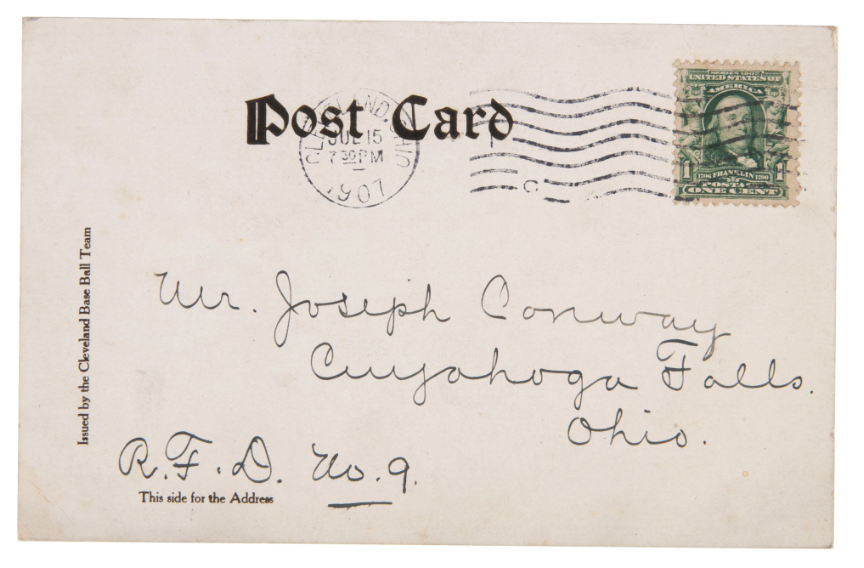 Post Card
CLEVELAND, OHIO
JUL 15
7 30 PM
1907
C
SERIES 1902
UNITED STATES OF
AMERICA
1706 FRANKLIN 1790
1 POSTAGE 1
ONE CENT
Issued by the Cleveland Base Ball Team
Mr. Joseph Conway
Cuyahoga Falls.
Ohio.
R.F.D. No. 9.
This side for the Address